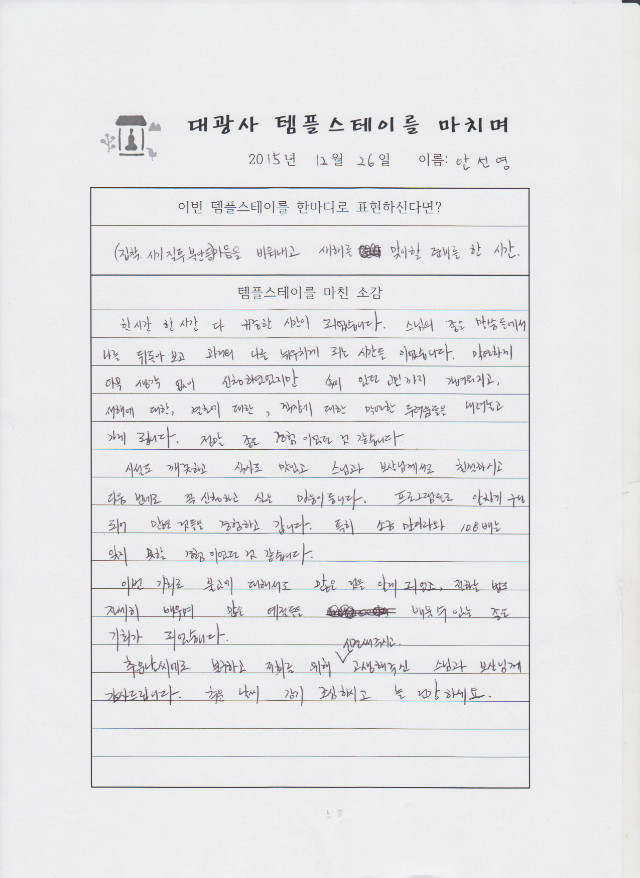 대광사 템플스테이를 마치며
2015년 12월 26일 이름: 안선영
이번 템플스테이를 한마디로 표현하신다면?
(집착, 시기 질투 부산물)마음을 비워내고 새해를 맞이할 준비를 한 시간.
템플스테이를 마친 소감
한시간 한시간 다 귀중한 시간이 되었습니다. 스님의 좋은 말씀들에서
나를 뒤돌아 보고 과거의 나를 뉘우치게 되는 시간들 이었습니다. 막연하게
아무 생각 없이 신청하였었지만 속에 있던 고민까지 가벼워지고,
새해에 대한, 변화에 대한, 직장에 대한 막연한 두려움들을 내려놓고
가게 됩니다. 정말 좋은 경험이었던 것 같습니다
시설도 깨끗하고 식사도 맛있고 스님과 보살님께서도 친절하시고
다음 번에도 꼭 신청하고 싶은 마음이 듭니다. 프로그램도 알차게 구성
되어 많은 것들을 경험하고 갑니다. 특히 소금 만다라와 108배는
잊지 못할 경험이었던 것 같습니다.
이번 기회로 불교에 대해서도 많은 것을 알게 되었고, 절하는 법도
자세히 배우며 많은 예절들을 배울 수 있는 좋은
기회가 되었습니다. 신경써주시고
추운날씨에도 불구하고 저희를 위해 고생해주신 스님과 보살님께
감사드립니다. 추운 날씨 감기 조심하시고 늘 건강하세요.